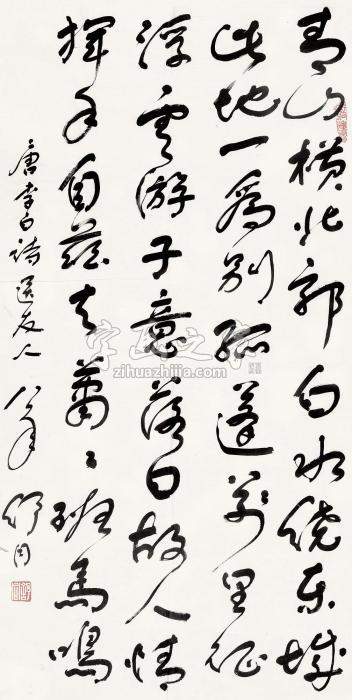 青山横北郭白水绕东城
此地一为别孤蓬万里征
浮云游子意落日故人情
挥手自兹去萧〻班马鸣
唐李白诗送友人 八〇年 舒同
字画之家
zihuazhijia.com